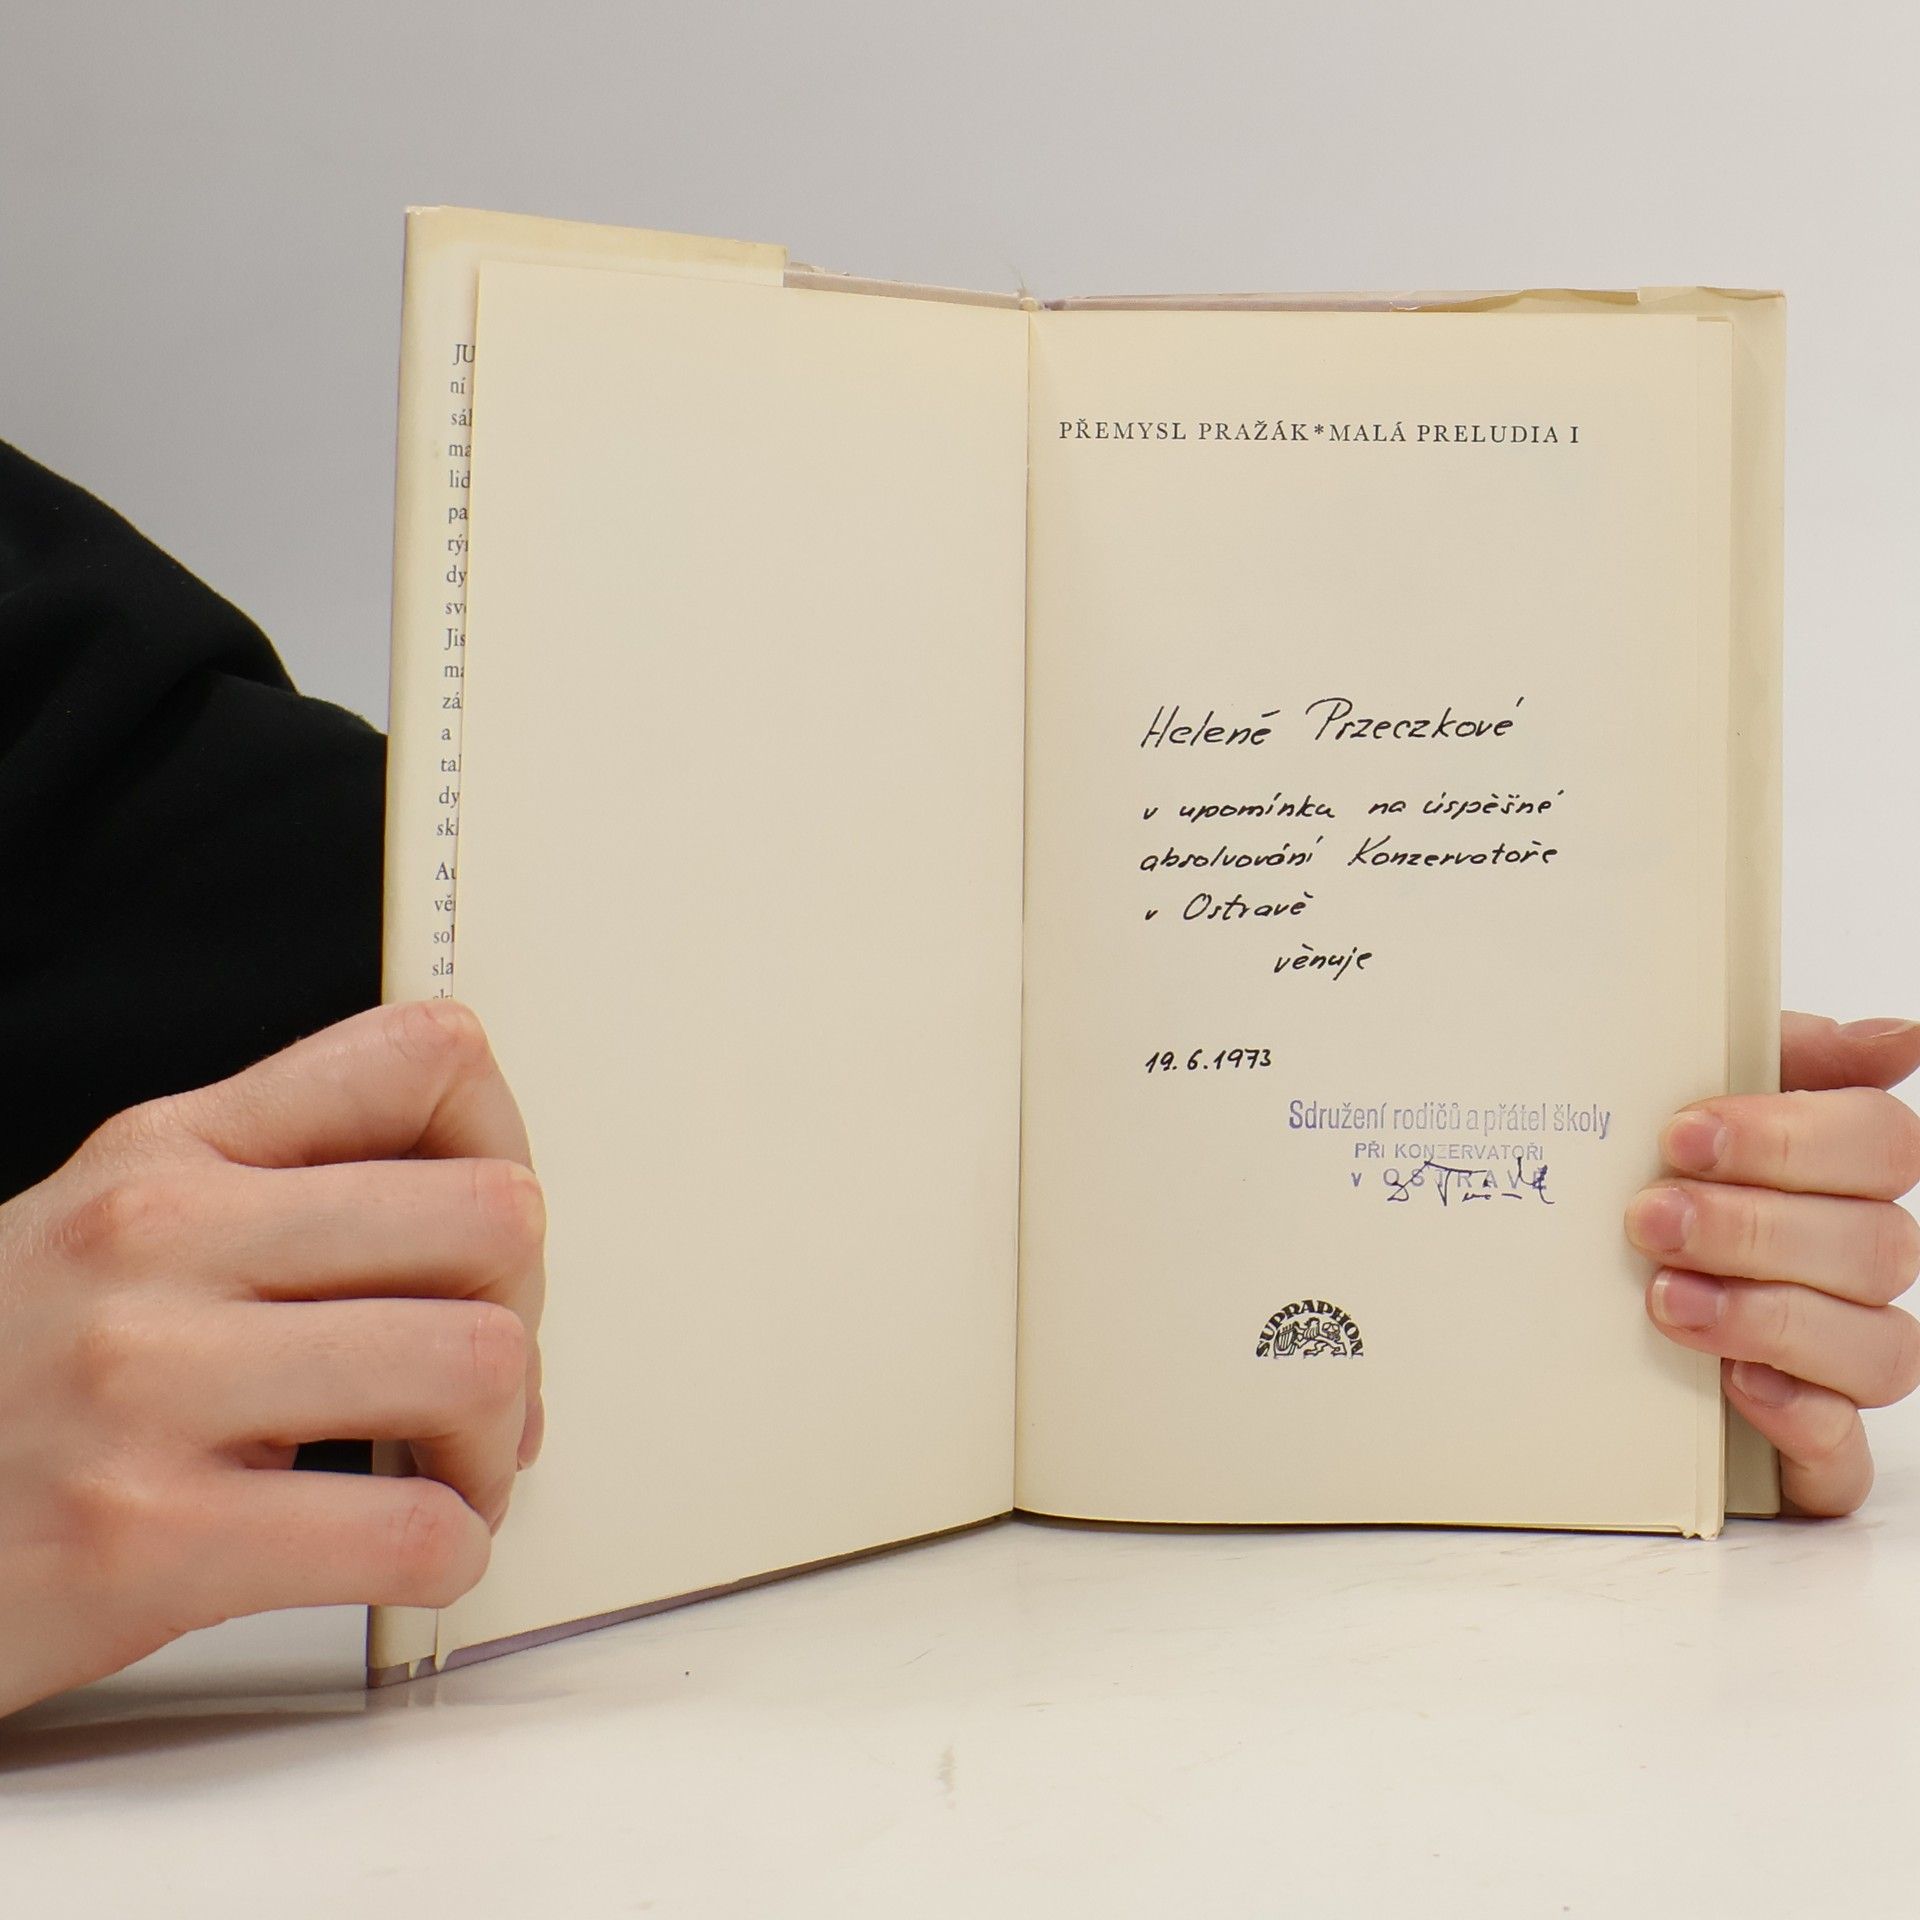 JU
ní
sáh
ma
lid
pa
rý
dy
sv
Jis
ma
zá
a
tal
dy
skl
Au
vě
sol
sla
PŘEMYSL PRAŽÁK*MALÁ PRELUDIA I
Heleně Przeczkové
v upomínku na úspěšné
absolvování Konzervatoře
v Ostravě
věnuje
19. 6. 1973
Sdružení rodičů a přátel školy
PŘI KONZERVATOŘI
v OSTRAVĚ
SUPRAPHON